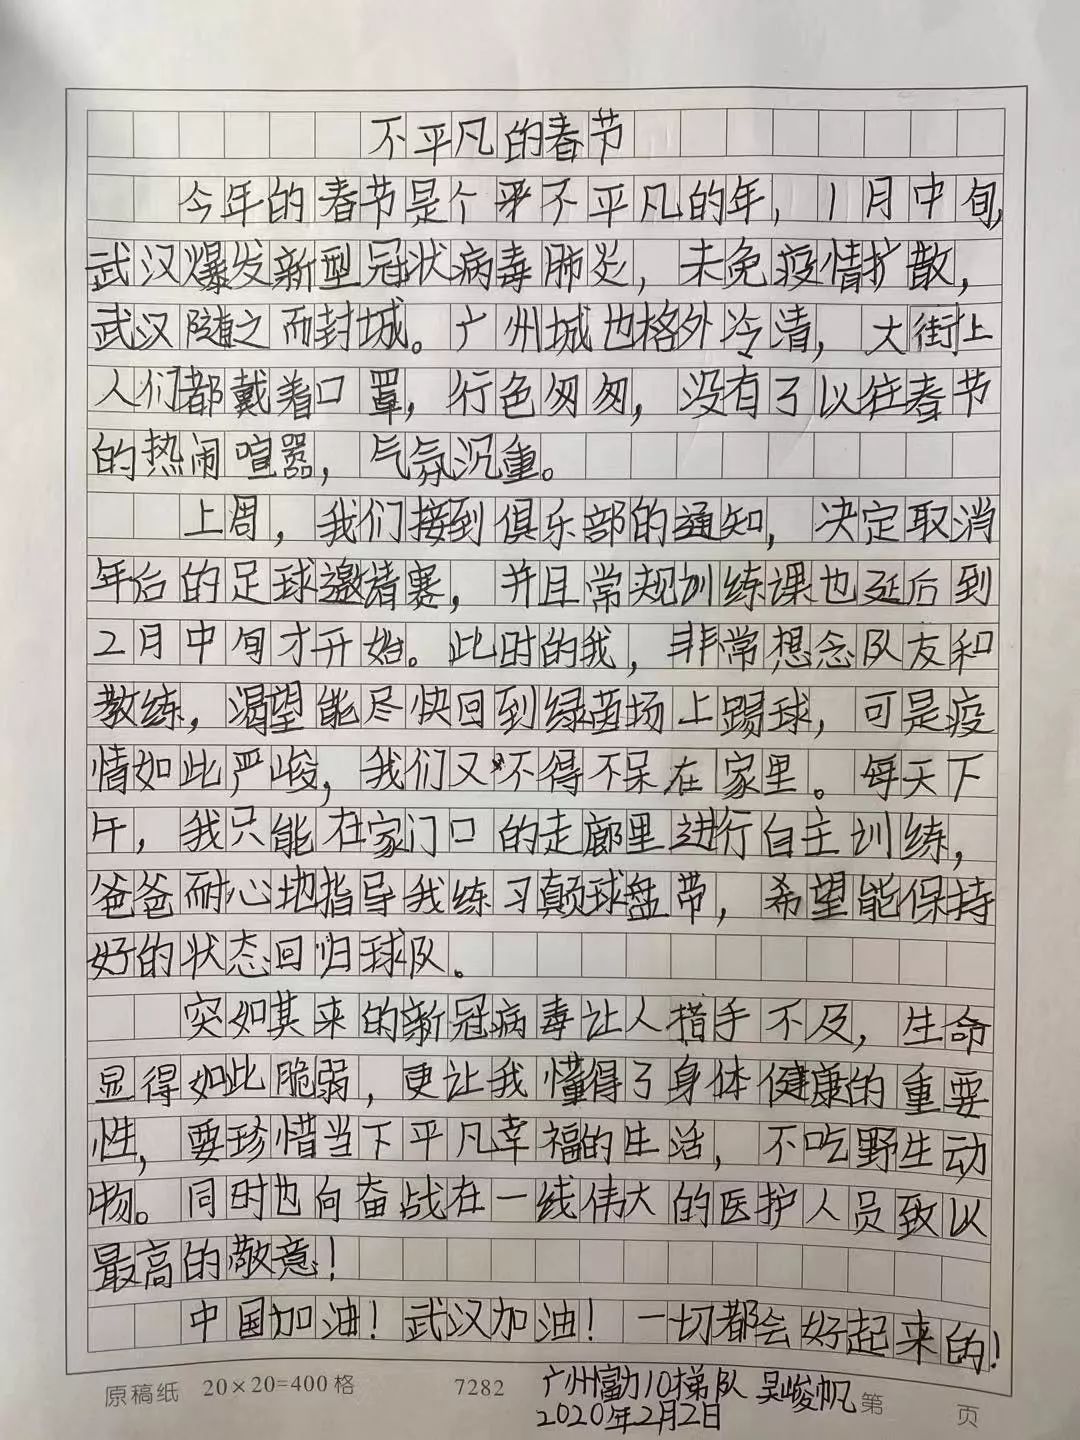 不平凡的春节
今年的春节是个不平凡的年，1月中旬，
武汉爆发新型冠状病毒肺炎，未免疫情扩散，
武汉随之而封城。广州城也格外冷清，大街上
人们都戴着口罩，行色匆匆，没有了以往春节
的热闹喧嚣，气氛沉重。
上周，我们接到俱乐部的通知，决定取消
年后的足球邀请赛，并且常规训练课也延后到
2月中旬才开始。此时的我，非常想念队友和
教练，渴望能尽快回到绿茵场上踢球，可是疫
情如此严峻，我们又不得不呆在家里。每天下
午，我只能在家门口的走廊里进行自主训练，
爸爸耐心地指导我练习颠球盘带，希望能保持
好的状态回归球队。
突如其来的新冠病毒让人措手不及，生命
显得如此脆弱，更让我懂得了身体健康的重要
性，要珍惜当下平凡幸福的生活，不吃野生动
物。同时也向奋战在一线伟大的医护人员致以
最高的敬意！
中国加油！武汉加油！一切都会好起来的！
原稿纸 20×20=400格 7282 广州富力10梯队 吴峻帆 第 页
2020年2月2日